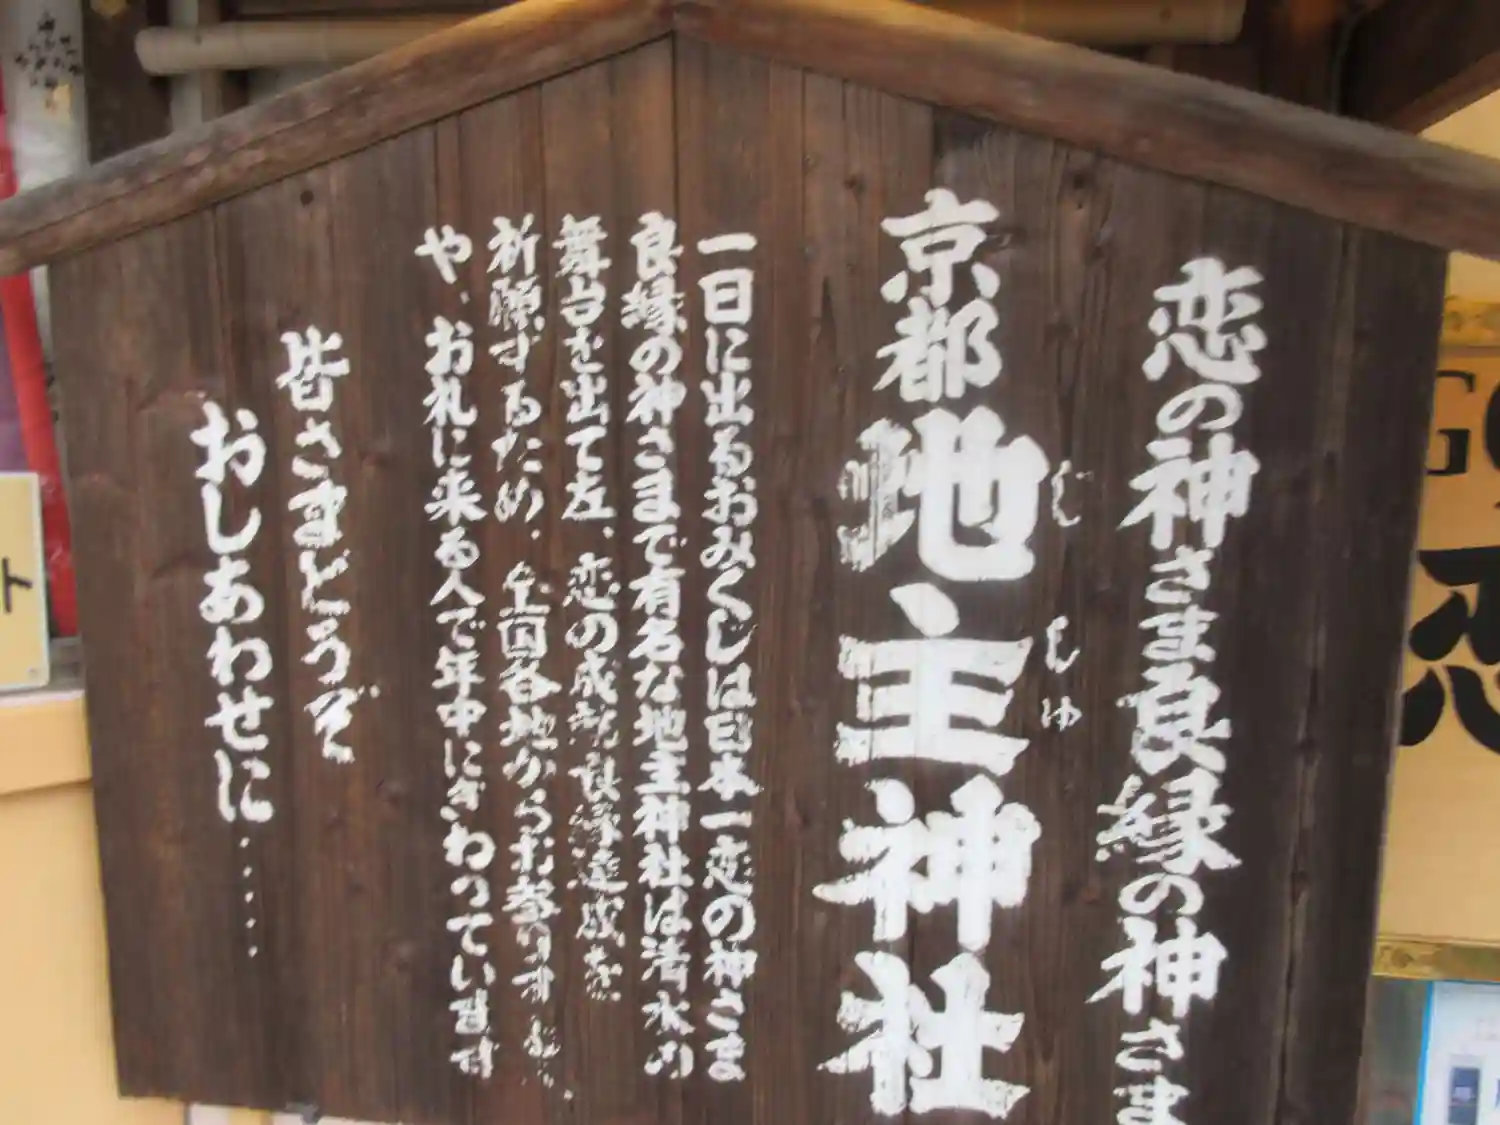 恋の神さま良縁の神さま
京都地主神社
じしゅ
一日に出るおみくじは日本一恋の神さま
良縁の神さまで有名な地主神社は清水の
舞台を出て左、恋の成就良縁達成を
祈願するため、全国各地からお参りする
や、お札に来る人で年中にぎわっています
皆さまどうぞ
おしあわせに……
ト